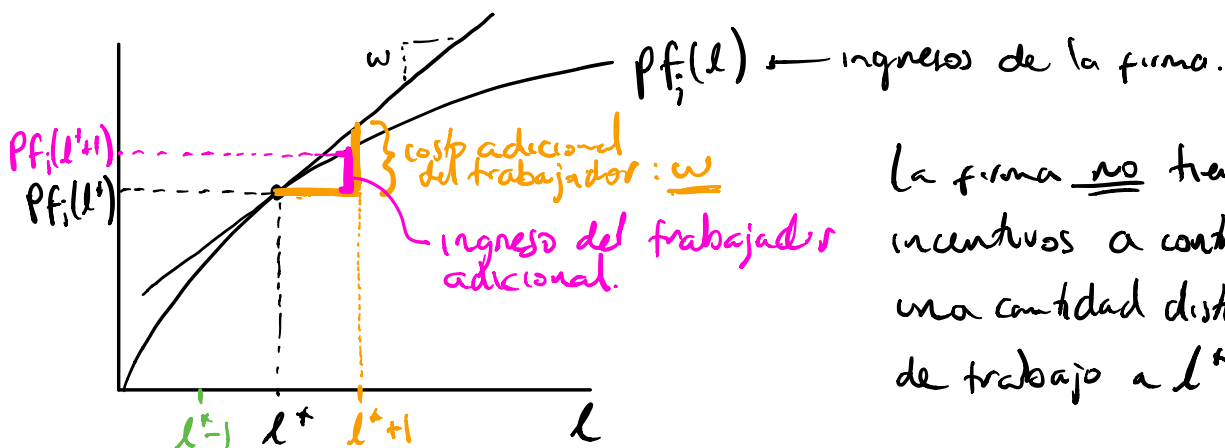 w
pf_j(l) ← ingresos de la firma.
Pf_j(l*+1)
Pf_j(l*)
costo adicional
del trabajador: w
ingreso del trabajador
adicional.
la firma no
incentivos a
una cantidad
de trabajo a l*
l*-1 l* l*+1 l